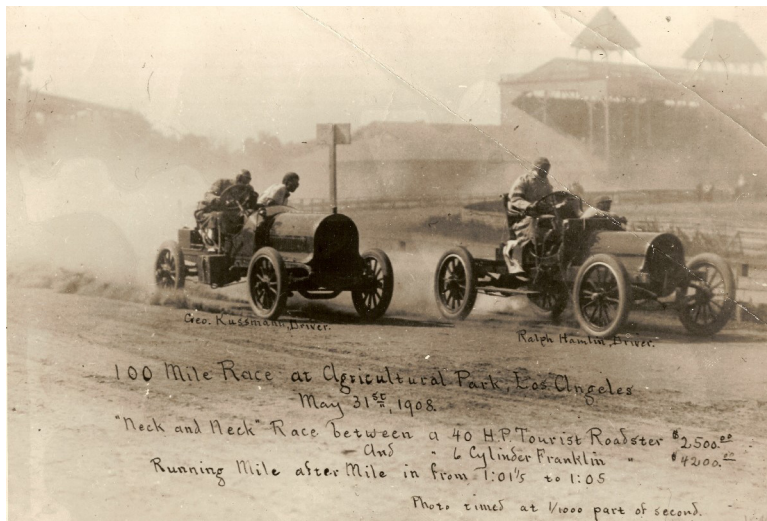 Geo. Kussman, Driver.
Ralph Hamlin, Driver.
100 Mile Race at Agricultural Park, Los Angeles
May 31st, 1908.
"Neck and Neck" Race between a 40 H.P. Tourist Roadster $2500.00
And " 6 Cylinder Franklin " $4200.00
Running Mile after Mile in from 1:01 to 1:05
Photo timed at 1/1000 part of second.